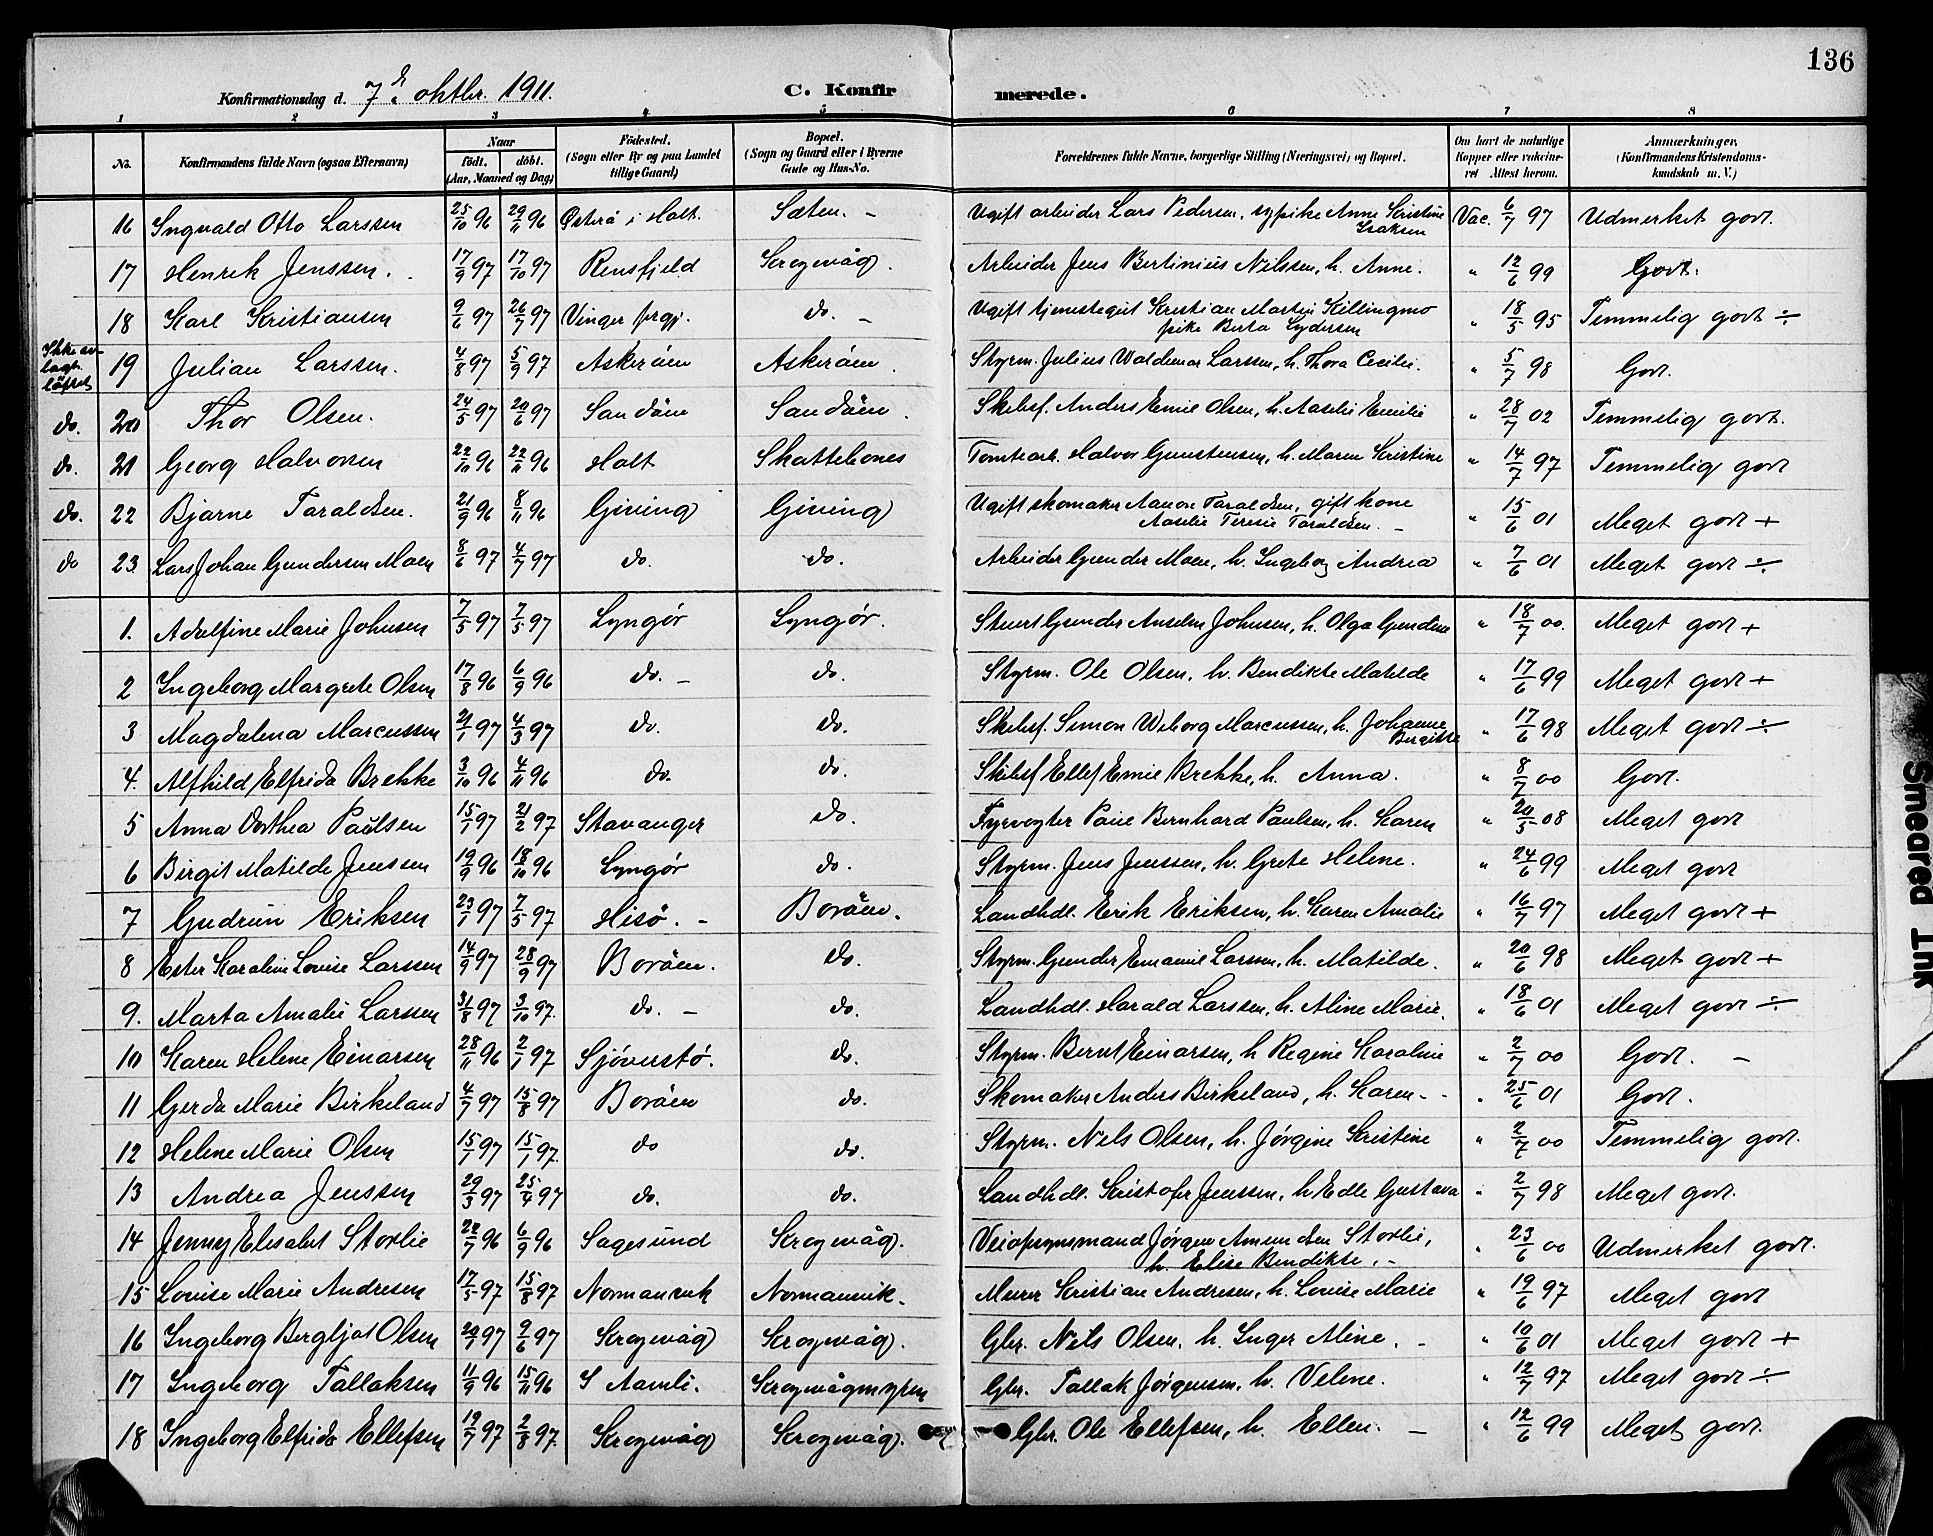 136
Konfirmationsdag d. 7de oktbr. 1911.
C. Konfirmerede.
1 2 3 4 5 6 7 8
No. Konfirmandens fulde Navn (ogsaa Efternavn) Naar födt. döbt. (Aar, Maaned og Dag) Födested. (Sogn eller By og paa Landet tillige Gaard) Bopæl. (Sogn og Gaard eller i Byerne Gade og Hus-No. Forældrenes fulde Navne, borgerlige Stilling (Næringsvei) og Bopæl. Om havt de naturlige Kopper eller vakcineret Attest herom. Anmærkninger. (Konfirmandens Kristendomskundskab m. V.)
16 Ingvald Otto Larssen 25/10 96 29/11 96 Østerå i Holt. Sæten. - Ugift arbeider Lars Pedersen, sypike Anne Kristine Isaksen Vac. 6/7 97 Udmerket godt.
17 Henrik Jenssen. 17/9 97 17/10 97 Rensfjeld Krogevåg. Arbeider Jens Bertinius Nilssen, h. Anne. " 12/6 99 Godt.
18 Karl Kristiansen 9/6 97 26/7 97 Vinger prgj. do. - Ugift tjenestegut Kristian Martin Killingmo pike Berta Lydersen " 18/5 95 Temmelig godt ÷
Ikke avlagt löftet 19 Julian Larssen. 4/8 97 5/9 97 Askeröen Askeröen. Styrm. Julius Waldemar Larssen, h. Thora Cecilie. " 5/7 98 Godt.
do. 20 Thor Olsen. 24/5 97 20/6 97 Sandöen Sandöen. Skibsf. Anders Emil Olsen, h. Aaselie Emilie " 28/7 02 Temmelig godt.
do. 21 Georg Halvorsen 22/10 96 22/11 96 Holt Skattebones Tomtearb. Halvor Gunstensen, h. Maren Kristine " 14/7 97 Temmelig godt
do. 22 Bjarne Taraldsen. 21/9 96 8/11 96 Giving Giving Ugift skomaker Aanon Taraldsen, gift kone Aaselie Teresie Taraldsen. - " 15/6 01 Meget godt +
do 23. Lars Johan Gundersen Moen 8/6 97 4/7 97 do. do. Arbeider Gunder Moen, h. Ingeborg Andrea " 7/6 01 Meget godt ÷
1. Adolfine Marie Johnsen 7/5 97 7/5 97 Lyngør Lyngør. Stuert Gunder Anselm Johnsen, h. Olga Gundine " 18/7 00. Meget godt +
2 Ingeborg Margrete Olsen 17/8 96 6/9 96 do. - do. Styrm. Ole Olsen, h. Bendikte Matilde " 17/6 99 Meget godt +
3 Magdalena Marcussen 21/1 97 4/3 97 do. do. Skibsf. Simon Weborg Marcussen, h. Johanne Birgitte " 17/6 98 Meget godt ÷
4. Alfhild Elfrida Brekke 3/10 96 4/11 96 do. do. Skibsf Ellef Emil Brekke, h. Anna. " 8/7 00 Godt.
5 Anna Dorthea Paulsen 15/1 97 21/2 97 Stavanger do. Fyrvogter Paul Bernhard Paulsen, h. Karen " 20/5 08 Meget godt
6 Birgit Matilde Jenssen 19/9 96 18/10 96 Lyngør do. Styrm. Jens Jenssen, h. Grete Helene. " 24/6 99 Meget godt
7 Gudrun Eriksen 23/1 97 7/5 97 Hisö. - Boröen. Landhdl. Erik Eriksen, h. Karen Amalie " 16/7 97 Meget godt +
8 Ester Karoline Lovise Larssen 14/9 97 28/9 97 Boröen. do. Styrm. Gunder Emanuel Larssen, h. Matilde. " 20/6 98 Meget godt +
9. Marta Amalie Larssen 31/8 97 3/10 97. do. - do. Landhdl. Harald Larssen, h. Aline Marie. " 18/6 01 Meget godt ÷
10 Karen Helene Einarsen 28/11 96 2/1 97 Sjöverstö. do. Styrm. Bernt Einarsen, h Regine Karoline " 2/7 00 Godt. -
11 Gerda Marie Birkeland 4/7 97 15/8 97 Boröen do. Skomaker Anders Birkeland, h. Karen - - " 25/6 01 Godt.
12 Helene Marie Olsen 15/1 97 15/1 97. do do. Styrm. Nils Olsen, h. Jörgine Kristine " 2/7 00 Temmelig godt.
13 Andrea Jenssen 29/3 97 25/4 97 do. do. Landhdl. Kristofer Jenssen, h Edle Gustava " 2/7 98 Meget godt.
14 Jenny Elisabet Storlie 22/7 96 6/9 96 Sagesund Krogevåg. Veiopsynsmand Jörgen Amundsen Storlie, h. Elise Bendikte. - " 23/6 00 Udmerket godt.
15 Lovise Marie Andresen 17/5 97 15/8 97 Normanvik Normanvik. Murer Kristian Andresen, h. Lovise Marie " 19/6 97 Meget godt
16 Ingeborg Bergljot Olsen 20/7 97 9/6 97 Krogevåg Krogevåg. Gbr. Nils Olsen, h. Inger Aline. - " 19/6 01 Meget godt +
17 Ingeborg Tallaksen 11/9 96 15/11 96 I Aamli. Krogevågmyren Gbr. Tallak Jörgensen, h. Velene. " 12/7 97 Meget godt ÷
18 Ingeborg Elfrida Ellefsen 19/7 97 2/8 97. Krogevåg Krogevåg. Gbr. Ole Ellefsen, h. Ellen. - " 12/6 99 Meget godt.
Smeared Ink